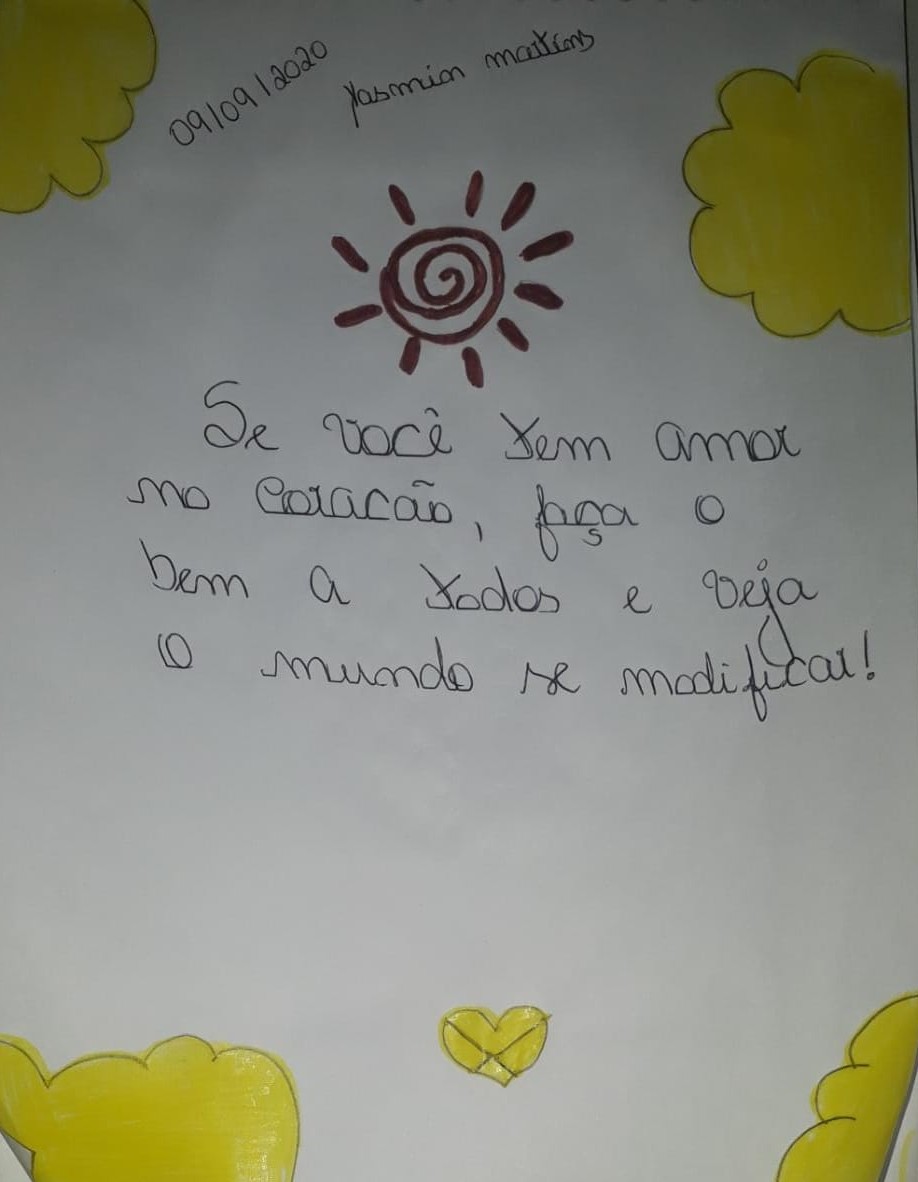 09/09/2020
Yasmin Martins
Se você tem amor
no Coracão, faça o
bem a todos e veja
o mundo se modificar!